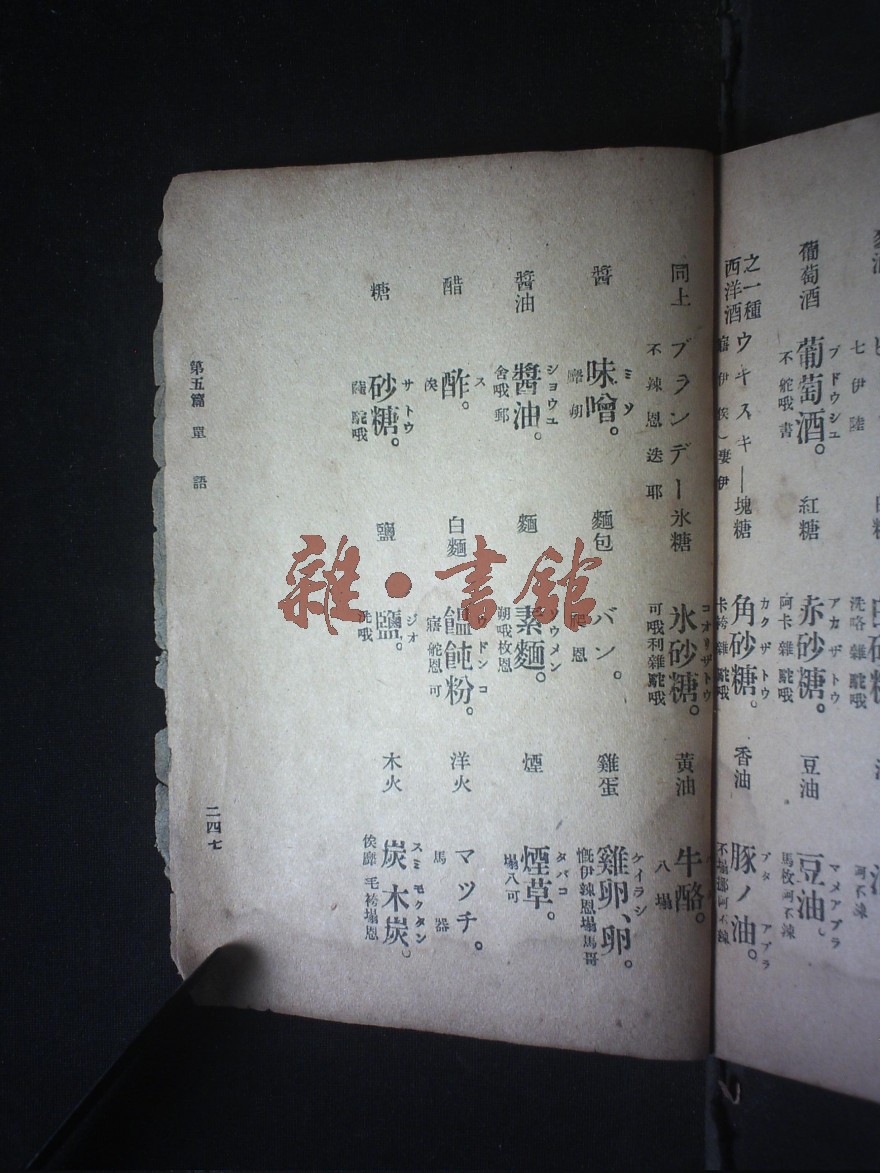 葡萄酒
ブドウシユ
葡萄酒。
不舵哦書
紅糖
アカザトウ
赤砂糖。
阿卡雜駝哦
豆油
マメアブラ
豆油。
馬枚阿不辣
西洋酒之一種
ウキスキー
塊糖
カクザトウ
角砂糖。
卡袴雜駝哦
香油
ブタ アブラ
豚ノ油。
不塌那阿不辣
同上
ブランデー
不辣恩迭耶
氷糖
コオリザトウ
氷砂糖。
可哦利雜駝哦
黄油
牛酪。
八塌
醬
ミソ
味噌。
麵包
パン。
爬恩
雞蛋
雞卵、卵。
慨伊辣恩塌馬哥
醬油
シヨウユ
醬油。
舍哦郵
麵
素麵。
朔哦枚恩
煙
タバコ
煙草。
塌八可
醋
ス
酢。
俟
白麵
饂飩粉。
寤舵恩可
洋火
マツチ。
馬器
糖
サトウ
砂糖。
薩駝哦
鹽
鹽。
洗哦
木火
スミ モクタン
炭 木炭。
俟靡 毛袴塌恩
第五篇 單語
二四七
雜·書館